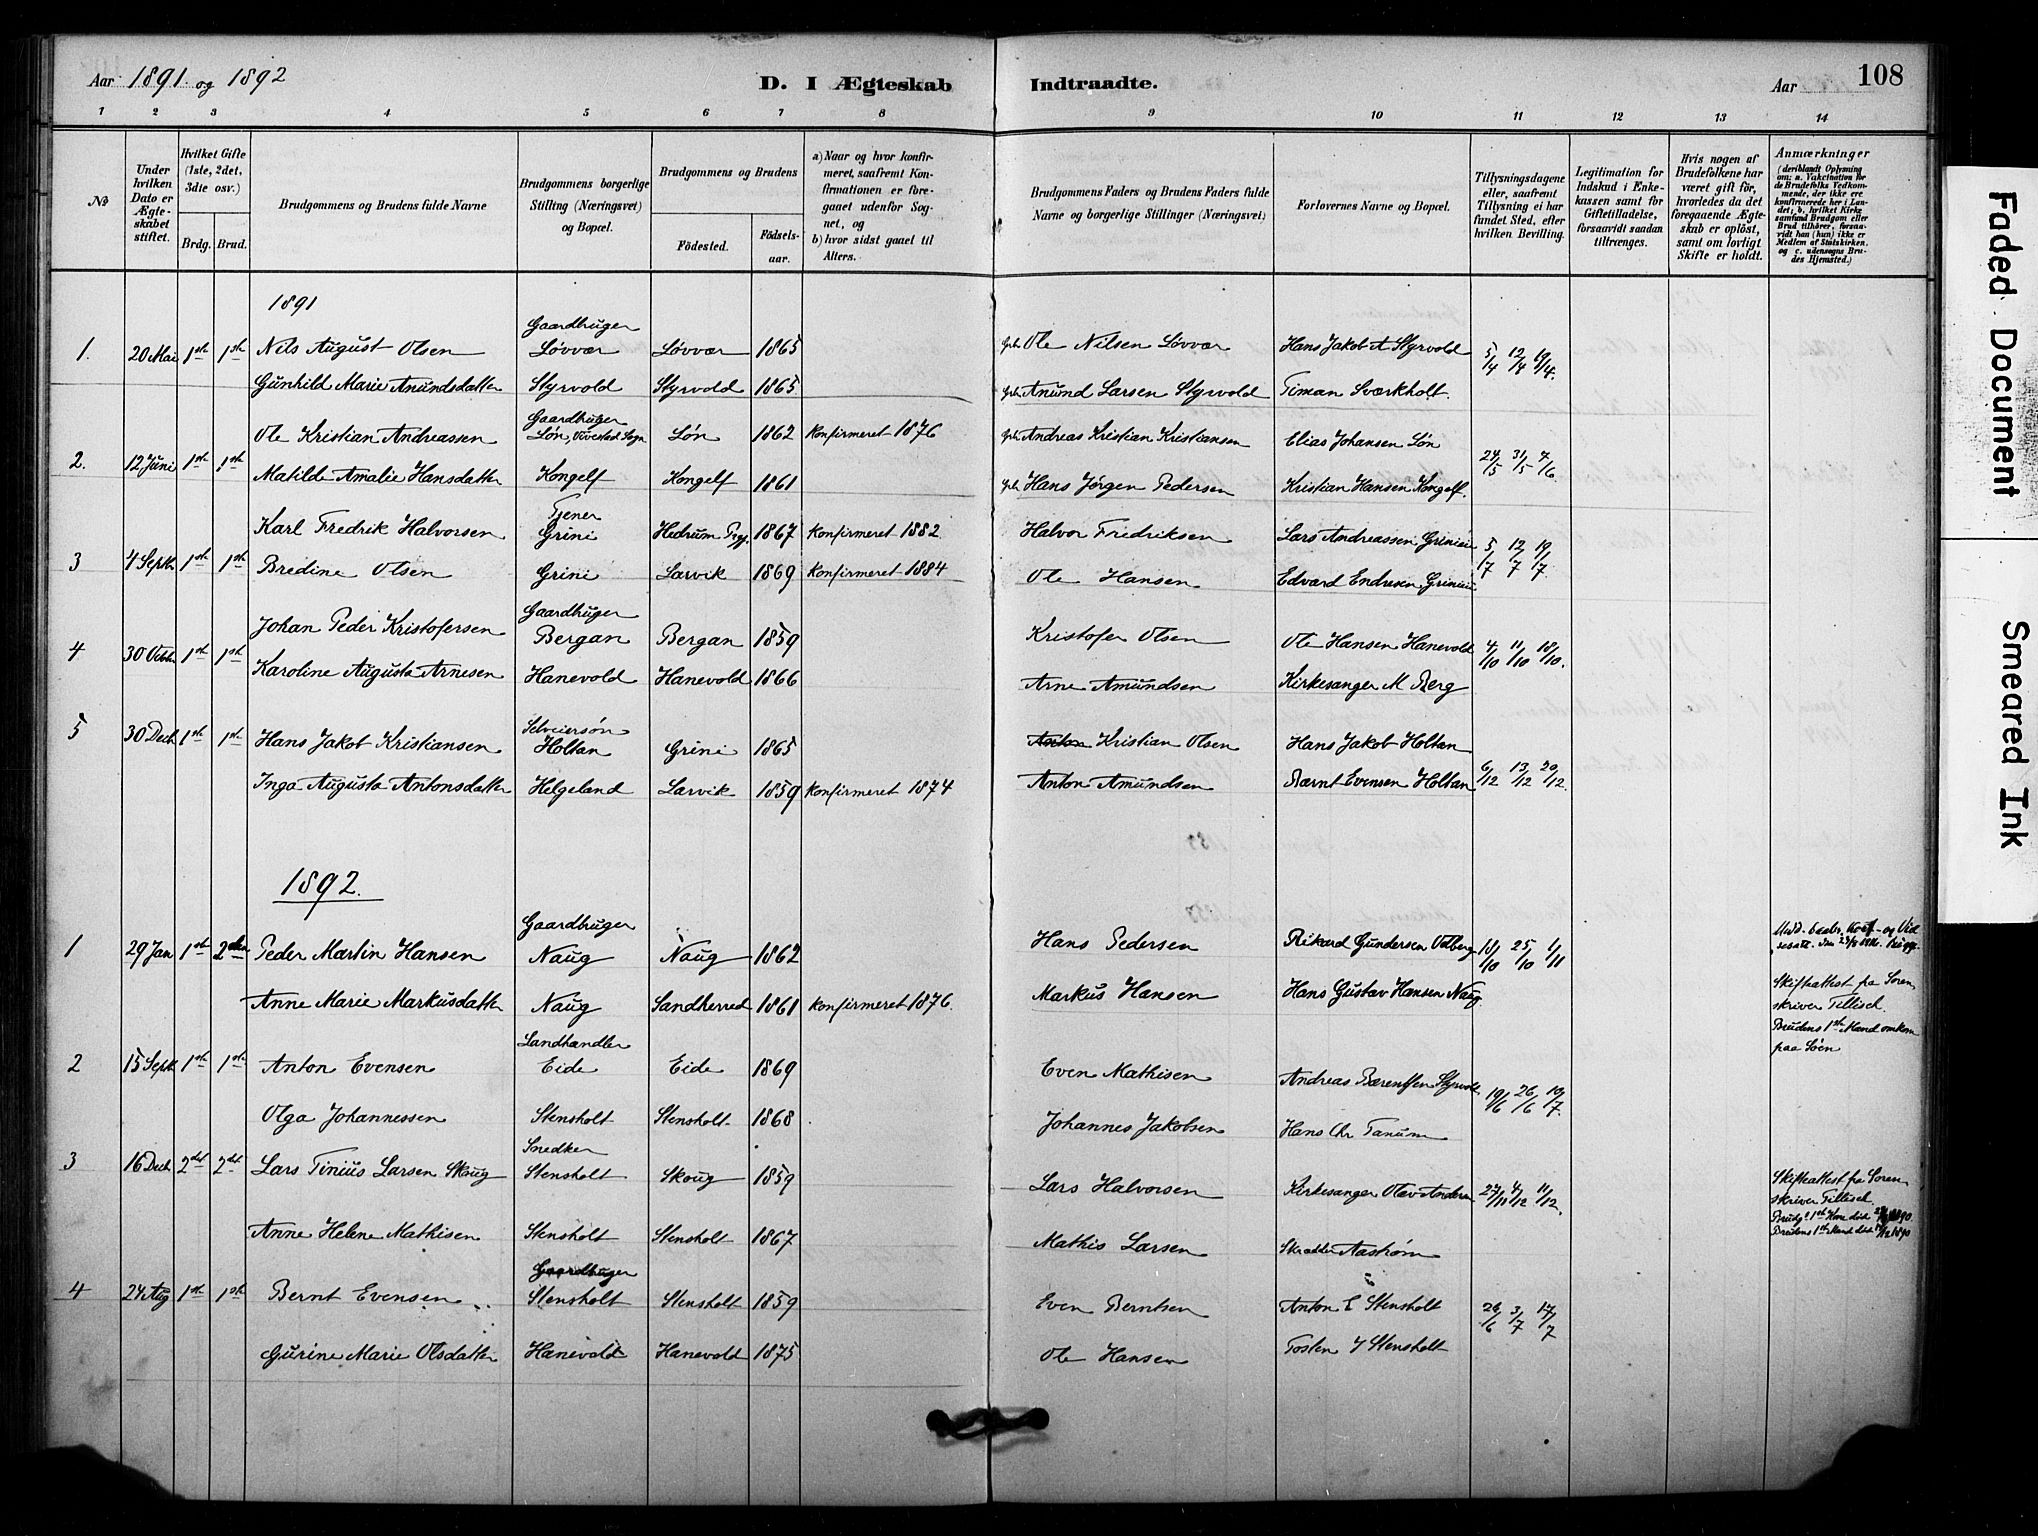 Aar 1891 og 1892
D. I Ægteskab Indtraadte.
Aar
108
1 2 3 4 5 6 7 8 9 10 11 12 13 14
No
Under hvilken Dato er Ægteskabet stiftet.
Hvilket Gifte (1ste, 2det, 3die osv.)
Brdg. Brud.
Brudgommens og Brudens fulde Navne
Brudgommens borgerlige Stilling (Næringsvei) og Bopæl.
Brudgommens og Brudens
Fødested. Fødselsaar.
a) Naar og hvor konfirmeret, saafremt Konfirmationen er foregaaet udenfor Sognet, og b) hvor sidst gaaet til Alters.
Brudgommens Faders og Brudens Faders fulde Navne og borgerlige Stillinger (Næringsvei)
Forlovernes Navne og Bopæl.
Tillysningsdagene eller, saafremt Tillysning ei har fundet Sted, efter hvilken Bevilling.
Legitimation for Indskud i Enkekassen samt for Giftetilladelse, forsaavidt saadan tiltrænges.
Hvis nogen af Brudefolkene har været gift før, hvorledes da det foregaaende Ægteskab er opløst, samt om lovligt Skifte er holdt.
Anmærkninger (deriblandt Oplysning om: a. Vakcination for de Brudefolks Vedkommende, der ikke ere konfirmerede her i Landet; b. hvilket Kirkesamfund Brudgom eller Brud tilhører, forsaavidt han (hun) ikke er Medlem af Statskirken. og c. udensogns Brudes Hjemsted.)
1891
Gaardbruger
1. 20 Mai 1ste 1ste Nils August Olsen Løvvær Løvvær 1865 Ole Nilsen Løvvær Hans Jakob A Styrvold 5/4 12/4 19/4.
Gunhild Marie Anundsdatter Styrvold Styrvold 1865 Anund Larsen Styrvold Timan Sværkholt.
Gaardbruger
Ole Kristian Andreassen Løn, Sogn Løn 1862 Konfirmeret 1876 Andreas Kristian Kristiansen Elias Johansen Løn
2. 12 Juni 1ste 1ste Matilde Amalie Hansdatter Kongelf Kongelf 1861 Hans Jørgen Pedersen Kristian Hansen Kongelf. 24/5 31/5 7/6.
Tjener
Karl Fredrik Halvorsen Grini Hedrum Prgj. 1867 Konfirmeret 1882 Halvor Fredriksen Lars Andreassen 5/7 12/7 19/7.
3 4 Septb 1ste 1ste Bredine Olsen Grini Larvik 1869 Konfirmeret 1884 Ole Hansen Edvard Endresen
Gaardbruger
Johan Peder Kristofersen Bergan Bergan 1859 Kristofer Olsen Ole Hansen Hanevold 4/10 11/10 18/10.
4 30 Octbr 1ste 1ste Karoline Augusta Arnesen Hanevold Hanevold 1866 Arne Amundsen Kirkesanger M Berg
Selveiersøn
5 30 Decb 1ste 1ste Hans Jakob Kristiansen Holtan Grini 1865 Anton Kristian Olsen Hans Jakob Holtan
Inga Augusta Antonsdatter Helgeland Larvik 1859 Konfirmeret 1874 Anton Amundsen Bærnt Evensen Holtan 6/12 13/12 20/12.
1892.
Gaardbruger
1 29 Jan 1ste 2den Peder Martin Hansen Naug Naug 1862 Hans Pedersen Rikard Gundersen Vedberg 18/10 25/10 1/11
Anne Marie Markusdatter Naug Sandherred 1861 Konfirmeret 1876. Markus Hansen Hans Gustav Hansen Naug.
Skifteattest fra Sorenskriver Tillisch.
Brudens 1ste Mand omkom paa Søen
Landhandler
2 15 Septb 1ste 1ste Anton Evensen Eide Eide 1869 Even Mathisen Andreas Bærentsen Styrvold 19/6 26/6 10/7.
Olga Johannessen Stensholt Stensholt 1868 Johannes Jakobsen Hans Chr Tanum
Snedker
3 16 Decb 2det 2det Lars Tinius Larsen Skoug Stensholt Skoug 1859 Lars Halvorsen Kirkesanger Olav Andersen 27/11 4/12 11/12.
Skifteattest fra Sorenskriver Tillisch
Anne Helene Mathisen Stensholt Stensholt 1867 Mathis Larsen Skrædder Aastrøm
Brudg 1ste Kone død 1890.
Brudens 1ste Mand død 1890
Gaardbruger
4 24 Aug 1ste 1ste Bernt Evensen Stensholt Stensholt 1859 Even Berntsen Anton E Stensholt 26/6 3/7 17/7
Gurine Marie Olsdatter Hanevold Hanevold 1875 Ole Hansen Tosten J Stensholt
Faded Document
Smeared Ink